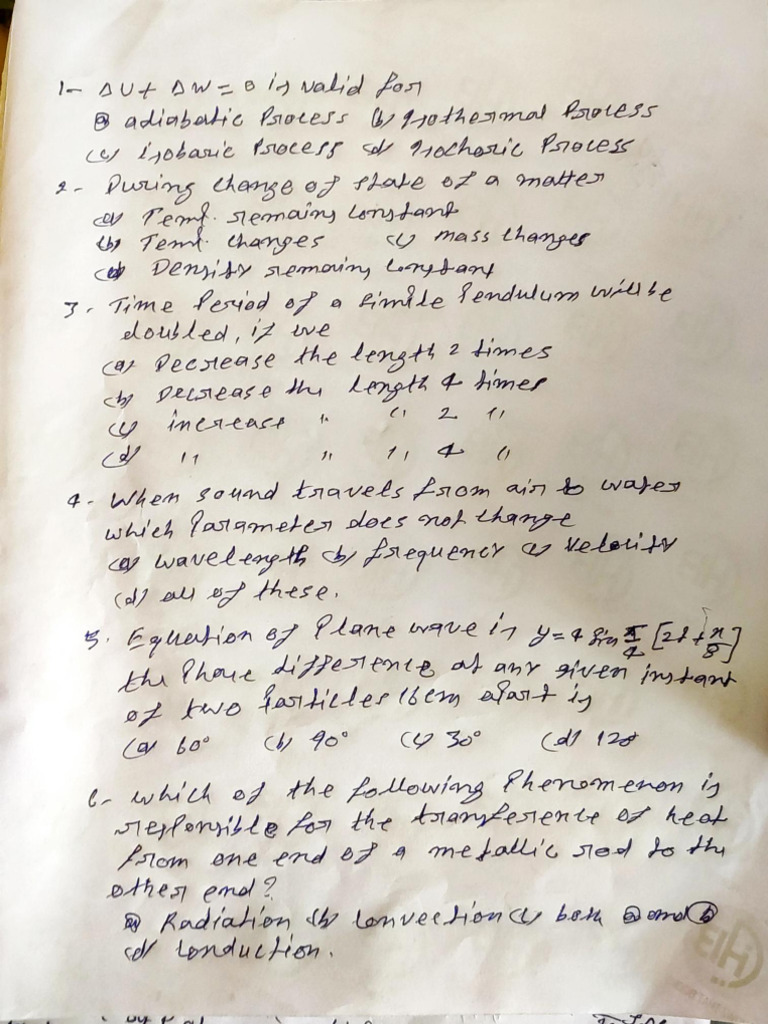 1- ΔU + ΔW = 0 is valid for
(a) adiabatic Process (b) Isothermal Process
(c) isobaric Process (d) Isochoric Process
2- During change of state of a matter
(a) Temp. remains constant
(b) Temp. changes (c) mass changes
(d) Density remains constant
3. Time Period of a simple Pendulum will be
doubled, if we
(a) Decrease the length 2 times
(b) Decrease the length 4 times
(c) increase " " 2 "
(d) " " " 4 "
4- When sound travels from air to water
which Parameter does not change
(a) wavelength (b) frequency (c) velocity
(d) all of these.
5. Equation of Plane wave is y = 4 sin π/4 [2t + x/8]
the Phase difference at any given instant
of two Particles 16cm apart is
(a) 60° (b) 90° (c) 30° (d) 120
6- which of the following Phenomenon is
responsible for the transference of heat
from one end of a metallic rod to the
other end?
(a) Radiation (b) convection (c) both (a) and (b)
(d) conduction.